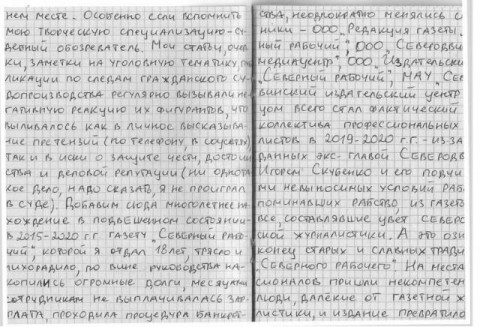 нем месте. Особенно если вспомнить
мою творческую специализацию – су-
дебный обозреватель. Мои статьи, очер-
ки, заметки на уголовную тематику, пуб-
ликации по следам гражданского су-
допроизводства регулярно вызывали не-
гативную реакцию их фигурантов, что
выливалось как в личное высказыва-
ние претензий (по телефону, в соцсетях)
так и в иски о защите чести, достоин-
ства и деловой репутации (ни одно та-
кое дело, надо сказать, я не проиграл
в суде). Добавим сюда многолетнее на-
хождение в подвешенном состоянии
в 2015-2020 г.г. газету „Северный рабо-
чий", которой я отдал 18 лет, трясло и
лихорадило, по вине руководства на-
копились огромные долги, месяцами
сотрудникам не выплачивалась зар-
плата, проходила процедура банкрот-
ства, неоднократно менялись
ники – ООО „Редакция газеты
ный рабочий", ООО „Северодвин
медиацентр", ООО „Издательски
„Северный рабочий", МАУ „Сев
винский издательский центр
цом всего стал фактический
коллектива профессиональных
листов в 2019-2020 г.г. - из-за
данных экс-главой Северодв
Игорем Скубенко и его подчи
ми невыносимых условий раб
поминавших рабство, из газеты
все, составлявшие цвет северо
ской журналистики. А это озн
конец старых и славных тради
„Северного рабочего". На места
сионалов пришли некомпетен
люди, далекие от газетной ж
листики, и издание превратило